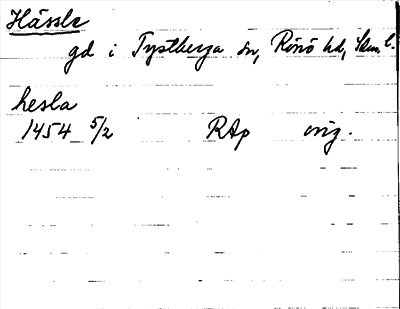 Hässle
gd i Tystberga sn, Rönö hd, Söm l.
hesla
1454 5/2 RAp orig.